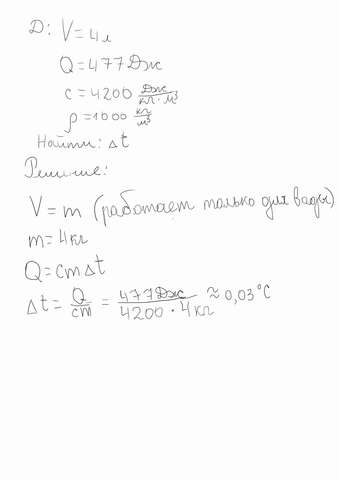 Д: V = 4 л
Q = 477 Дж
c = 4200 Дж/кг·м³
ρ = 1000 кг/м³
Найти: Δt
Решение:
V = m (работает только для вады)
m = 4 кг
Q = cmΔt
Δt = Q/cm = 477 Дж/4200 · 4 кг ≈ 0,03 °C